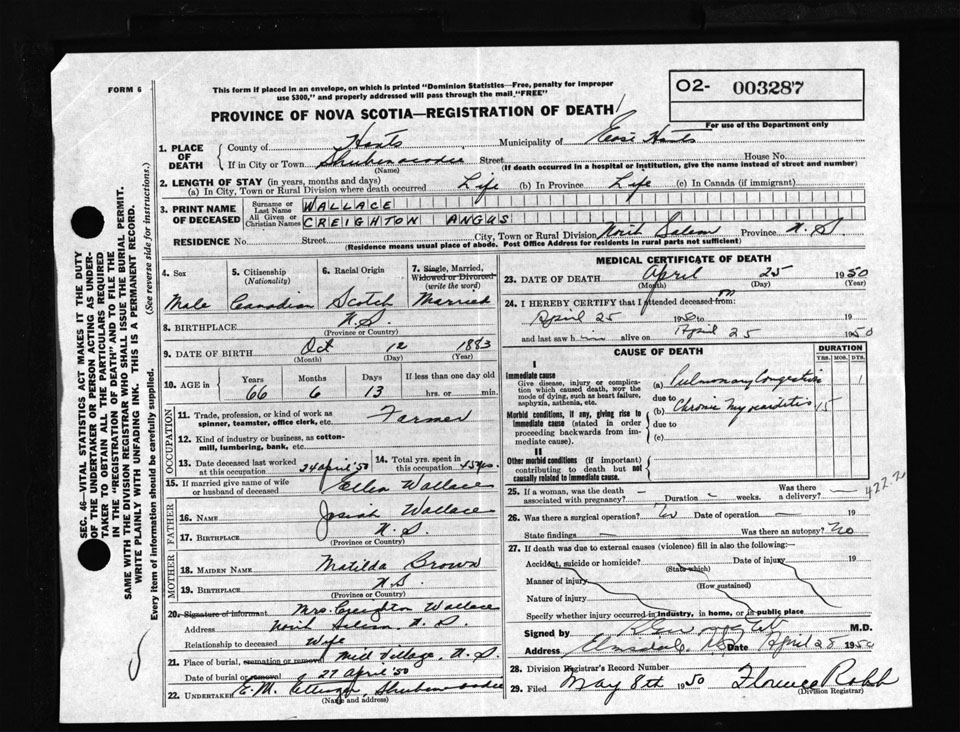 FORM 6
This form if placed in an envelope, on which is printed "Dominion Statistics—Free, penalty for improper
use $300," and properly addressed will pass through the mail, "FREE"
O2- 003287
For use of the Department only
PROVINCE OF NOVA SCOTIA—REGISTRATION OF DEATH
1. PLACE OF DEATH
County of Hants Municipality of East Hants
If in City or Town Shubenacadie Street House No.
(Name) (If death occurred in a hospital or institution, give the name instead of street and number)
2. LENGTH OF STAY (in years, months and days)
(a) In City, Town or Rural Division where death occurred Life (b) In Province Life (c) In Canada (if immigrant)
3. PRINT NAME OF DECEASED
Surname or Last Name WALLACE
All Given or Christian Names CREIGHTON ANGUS
RESIDENCE No. Street City, Town or Rural Division North Salem Province N.S.
(Residence means usual place of abode. Post Office Address for residents in rural parts not sufficient)
4. Sex Male
5. Citizenship (Nationality) Canadian
6. Racial Origin Scotch
7. Single, Married, Widowed or Divorced (write the word) Married
8. BIRTHPLACE N.S.
(Province or Country)
9. DATE OF BIRTH Oct 12 1883
(Month) (Day) (Year)
10. AGE in Years Months Days If less than one day old
66 6 13 hrs. or min.
OCCUPATION
11. Trade, profession or kind of work as
spinner, teamster, office clerk, etc. Farmer
12. Kind of industry or business, as cotton-
mill, lumbering, bank, etc.
13. Date deceased last worked
at this occupation 24 April '50
14. Total yrs. spent in
this occupation 45 yrs.
15. If married give name of wife
or husband of deceased Ellen Wallace
FATHER
16. NAME Josiah Wallace
17. BIRTHPLACE N.S.
(Province or Country)
MOTHER
18. MAIDEN NAME Matilda Brown
19. BIRTHPLACE N.S.
(Province or Country)
20. Signature of informant Mrs. Creighton Wallace
Address North Salem, N.S.
Relationship to deceased Wife
21. Place of burial, cremation or removal Mill Village, N.S.
Date of burial or removal 27 April '50
22. UNDERTAKER E.M. Shubenacadie
(Name and address)
MEDICAL CERTIFICATE OF DEATH
23. DATE OF DEATH April 25 1950
(Month) (Day) (Year)
24. I HEREBY CERTIFY that I attended deceased from: on
April 25 1950 to 19
and last saw him alive on April 25 1950
CAUSE OF DEATH
DURATION
YRS. MOS. DYS.
I
Immediate cause
Give disease, injury or complica-
tion which caused death, NOT the
mode of dying, such as heart failure,
asphyxia, asthenia, etc.
(a) Pulmonary Congestion 1
due to
Morbid conditions, if any, giving rise to
immediate cause (stated in order
proceeding backwards from im-
mediate cause).
(b) Chronic Myocarditis 15
due to
(c)
II
Other morbid conditions (if important)
contributing to death but not
causally related to immediate cause.
422.2
25. If a woman, was the death
associated with pregnancy? – Duration – weeks. Was there
a delivery? –
26. Was there a surgical operation? No Date of operation – 19
State findings – Was there an autopsy? No
27. If death was due to external causes (violence) fill in also the following:—
Accident, suicide or homicide? Date of injury 19
(State which)
Manner of injury
(How sustained)
Nature of injury
Specify whether injury occurred in industry, in home, or in public place
Signed by M.D.
Address Elmsdale, N.S. Date April 25 1950
28. Division Registrar's Record Number
29. Filed May 8th 1950 Florence Robb
(Division Registrar)
SEC. 46—VITAL STATISTICS ACT MAKES IT THE DUTY
OF THE UNDERTAKER OR PERSON ACTING AS UNDER-
TAKER TO OBTAIN ALL THE PARTICULARS REQUIRED
IN THE "REGISTRATION OF DEATH" AND TO FILE THE
SAME WITH THE DIVISION REGISTRAR WHO SHALL ISSUE THE BURIAL PERMIT.
WRITE PLAINLY WITH UNFADING INK. THIS IS A PERMANENT RECORD.
Every item of information should be carefully supplied. (See reverse side for instructions.)